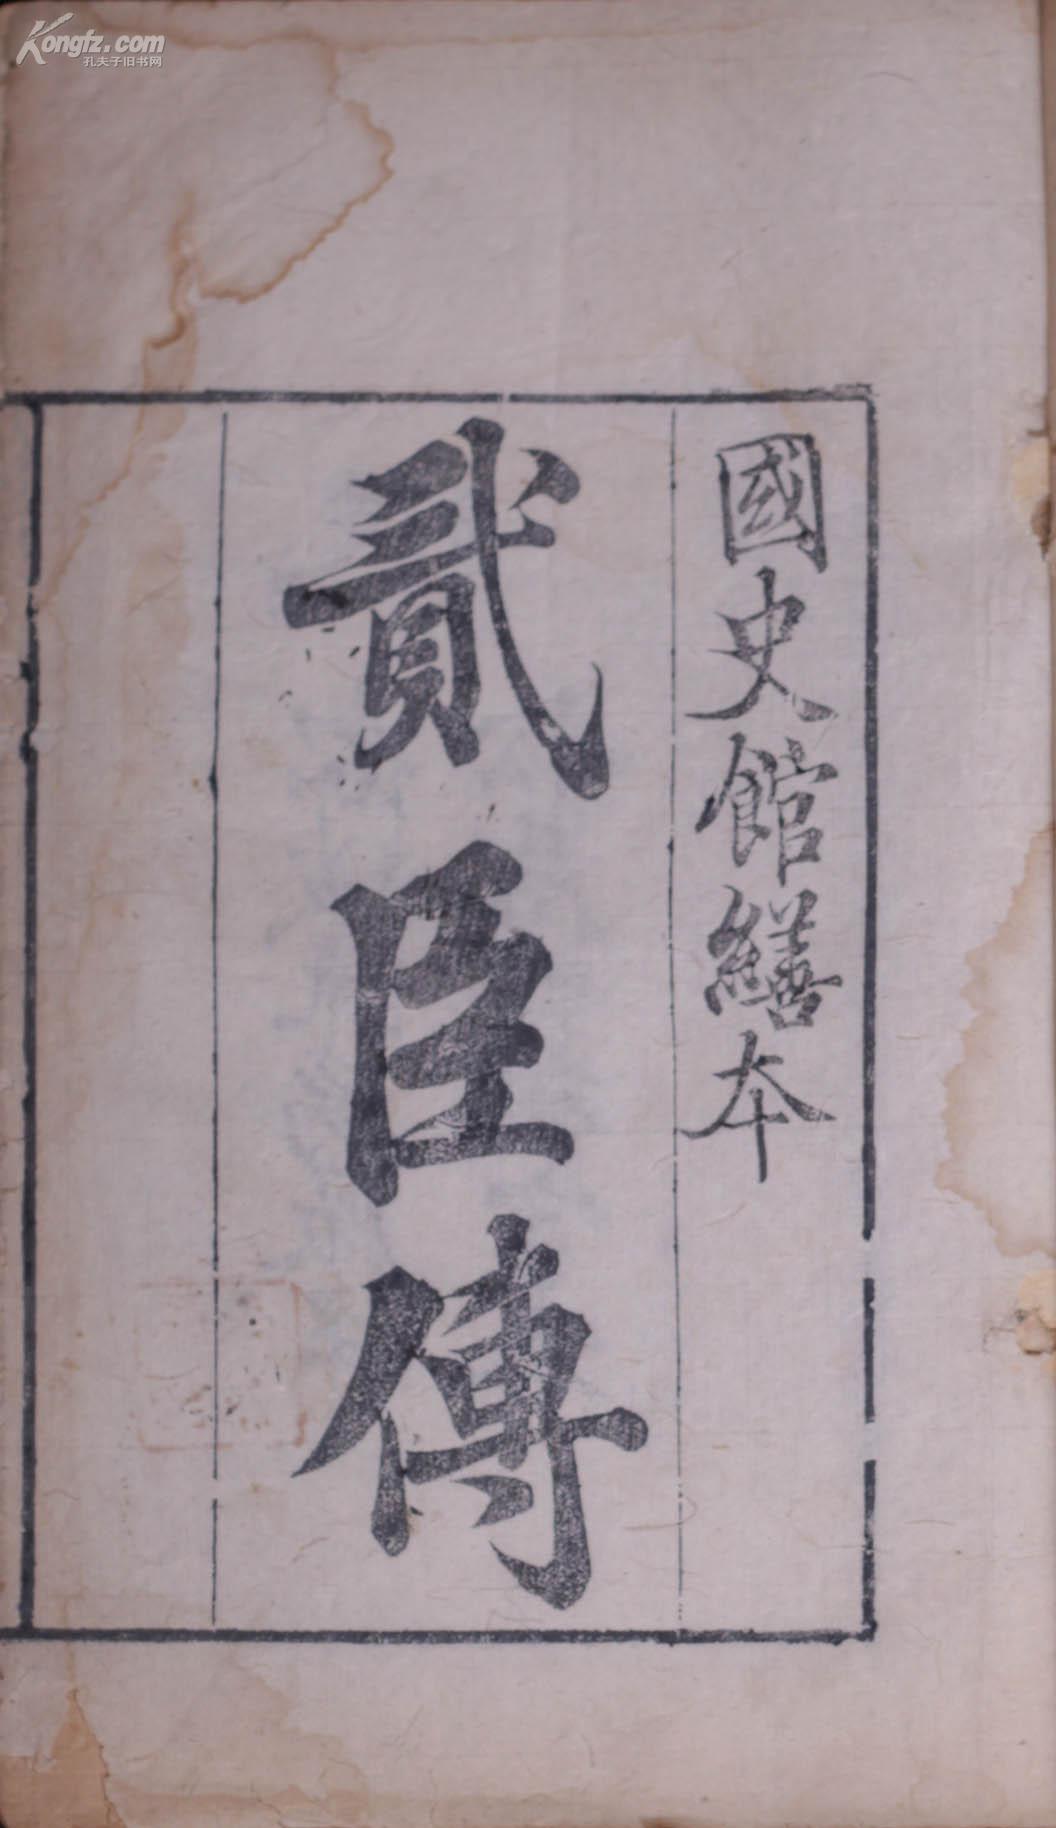 Kongfz.com
孔夫子旧书网
國史館繕本
貳臣傳